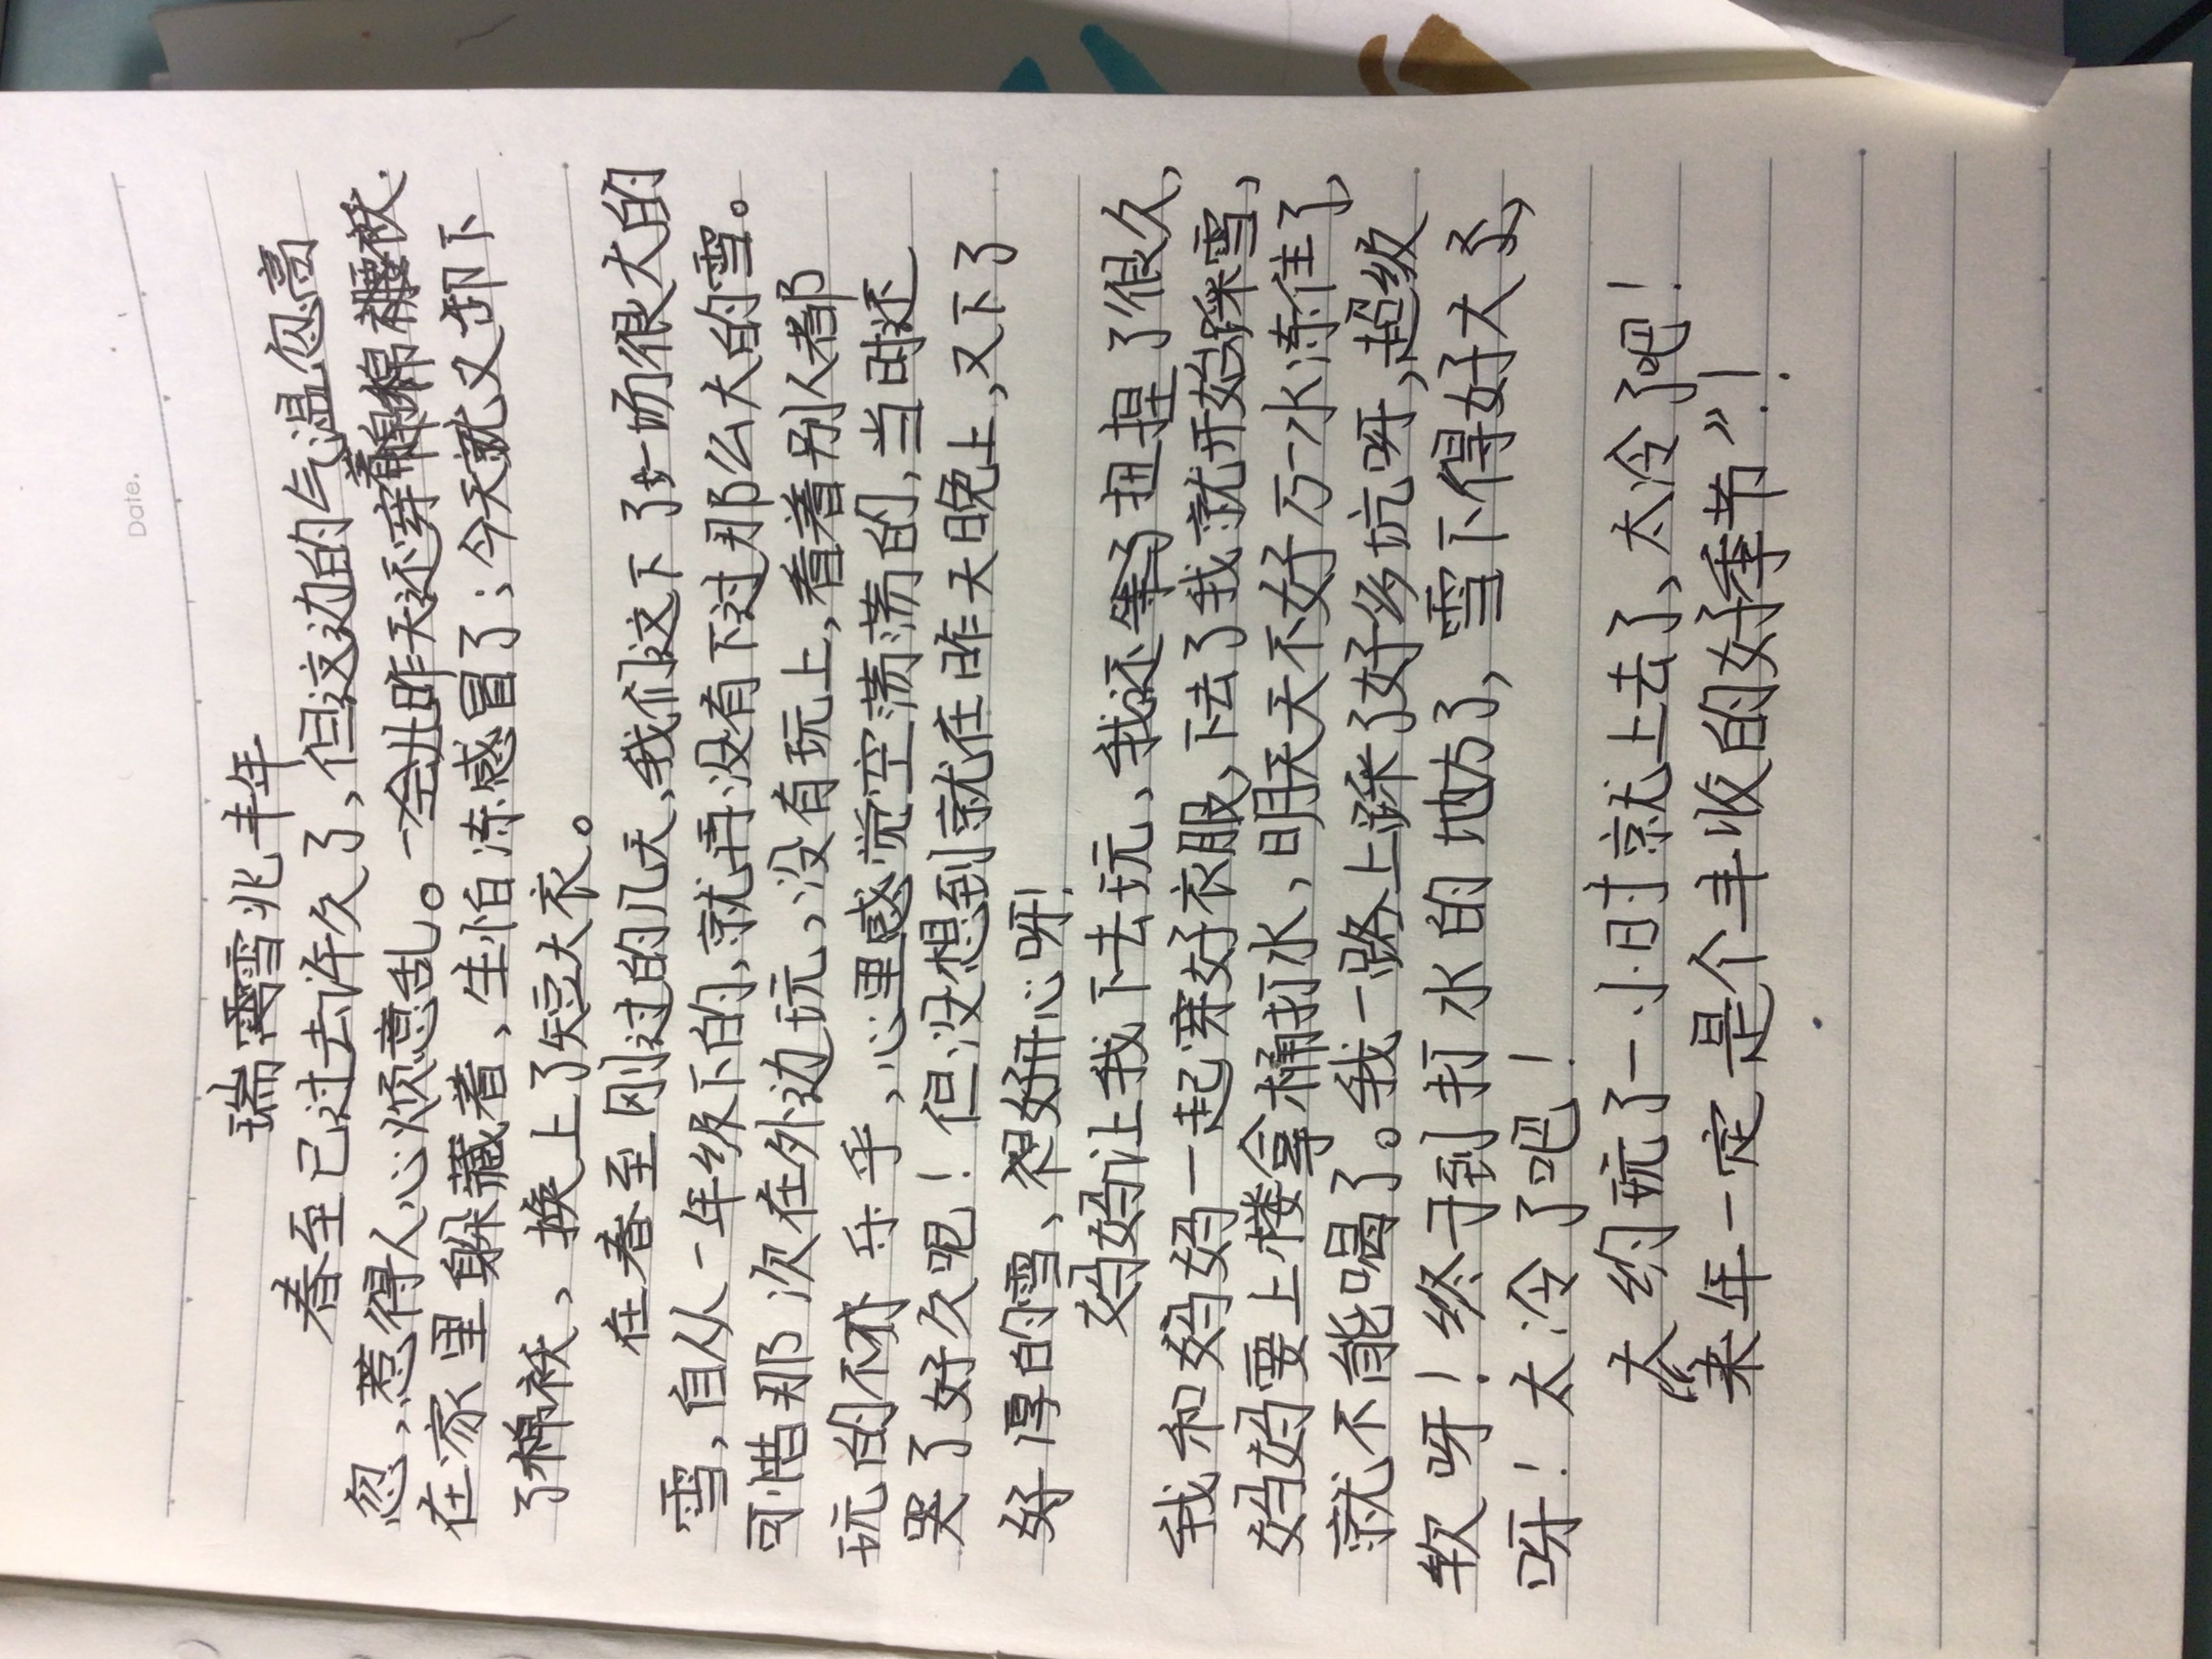 Date.
瑞雪兆丰年
春至已过去许久了,但这边的气温忽高
忽,惹得人心烦意乱。昨天还穿着棉袄
在家里躲藏着、生怕冻感冒了;今天就又卸下
了棉袄、换上了短大衣。
在春至刚过的几天,我们这下了一场很大的
雪,自从一年级下的,就再没有下过那么大的雪。
可惜那次在外边玩、没有玩上,看着别人都
玩的不亦乐乎,心里感觉空荡荡的,当时还
哭了好久呢!但没想到就在昨天晚上,又下了
好厚的雪、很开心呀!
妈妈让我下去玩、我还扭捏了很久,
我和妈妈一起穿好衣服,下去了我就开始踩雪,
妈妈要上楼拿桶打水,明天天不好万一水冻住了,
就不能喝了。我一路上踩了好多坑呀,超级
软呀!终于到打水的地方了,雪下得好大
呀!太冷了吧!
大约玩了一小时就上去了、太冷了吧!
“来年一定是个丰收的好季节”!